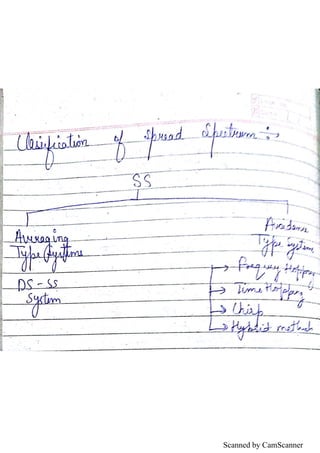 Classification of Spread Spectrum :->
SS
Averaging
Type Systems
DS-SS
System
Avoidance
Type System
→ Frequency Hopping
→ Time Hopping
→ Chirp
→ Hybrid method
Scanned by CamScanner